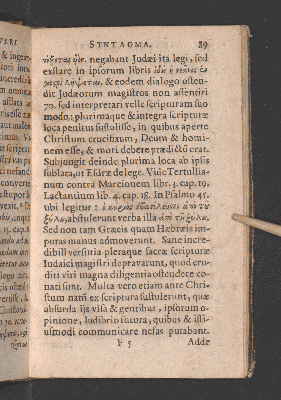 SYNTAGMA. 89
negabant Judæi ita legi, sed
exstare in ipsorum libris
& eodem dialogo osten-
dit Judæorum magistros non assentiri
70. sed interpretari velle scripturam suo
modo; plurimaque & integra scripturæ
loca penitus sustulisse, in quibus aperte
Christum crucifixum, Deum & homi-
nem esse, & mori debere prædictū erat.
Subjungit deinde plurima loca ab ipsis
sublata, ut Esdræ de lege. Vide Tertullia-
num contra Marcionem lib. 3. cap. 19.
Lactantium lib. 4. cap. 18. In Psalmo 45.
ubi legitur: ὁ κύριος ἐβασίλευσεν ἀπὸ τȣ͂
ξύλȣ, abstulerunt verba illa ἀπὸ τȣ͂ ξύλȣ.
Sed non tam Græcis quam Hæbrais im-
puras manus admoverunt. Sane incre-
dibili versutia pleraque sacræ scripturæ
Judaici magistri depravarunt, quod eru-
diti viri magna diligentia ostendere co-
nati sunt. Multa vero etiam ante Chri-
stum natū ex scriptura sustulerunt, quæ
absurda ijs visa & gentibus, ipsorum o-
pinione, ludibrio futura, quibus & isti-
usmodi communicare nefas putabant.
F 5 Adde